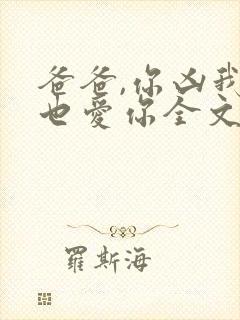 爸爸,你凶我
也爱你全文
羅斯海